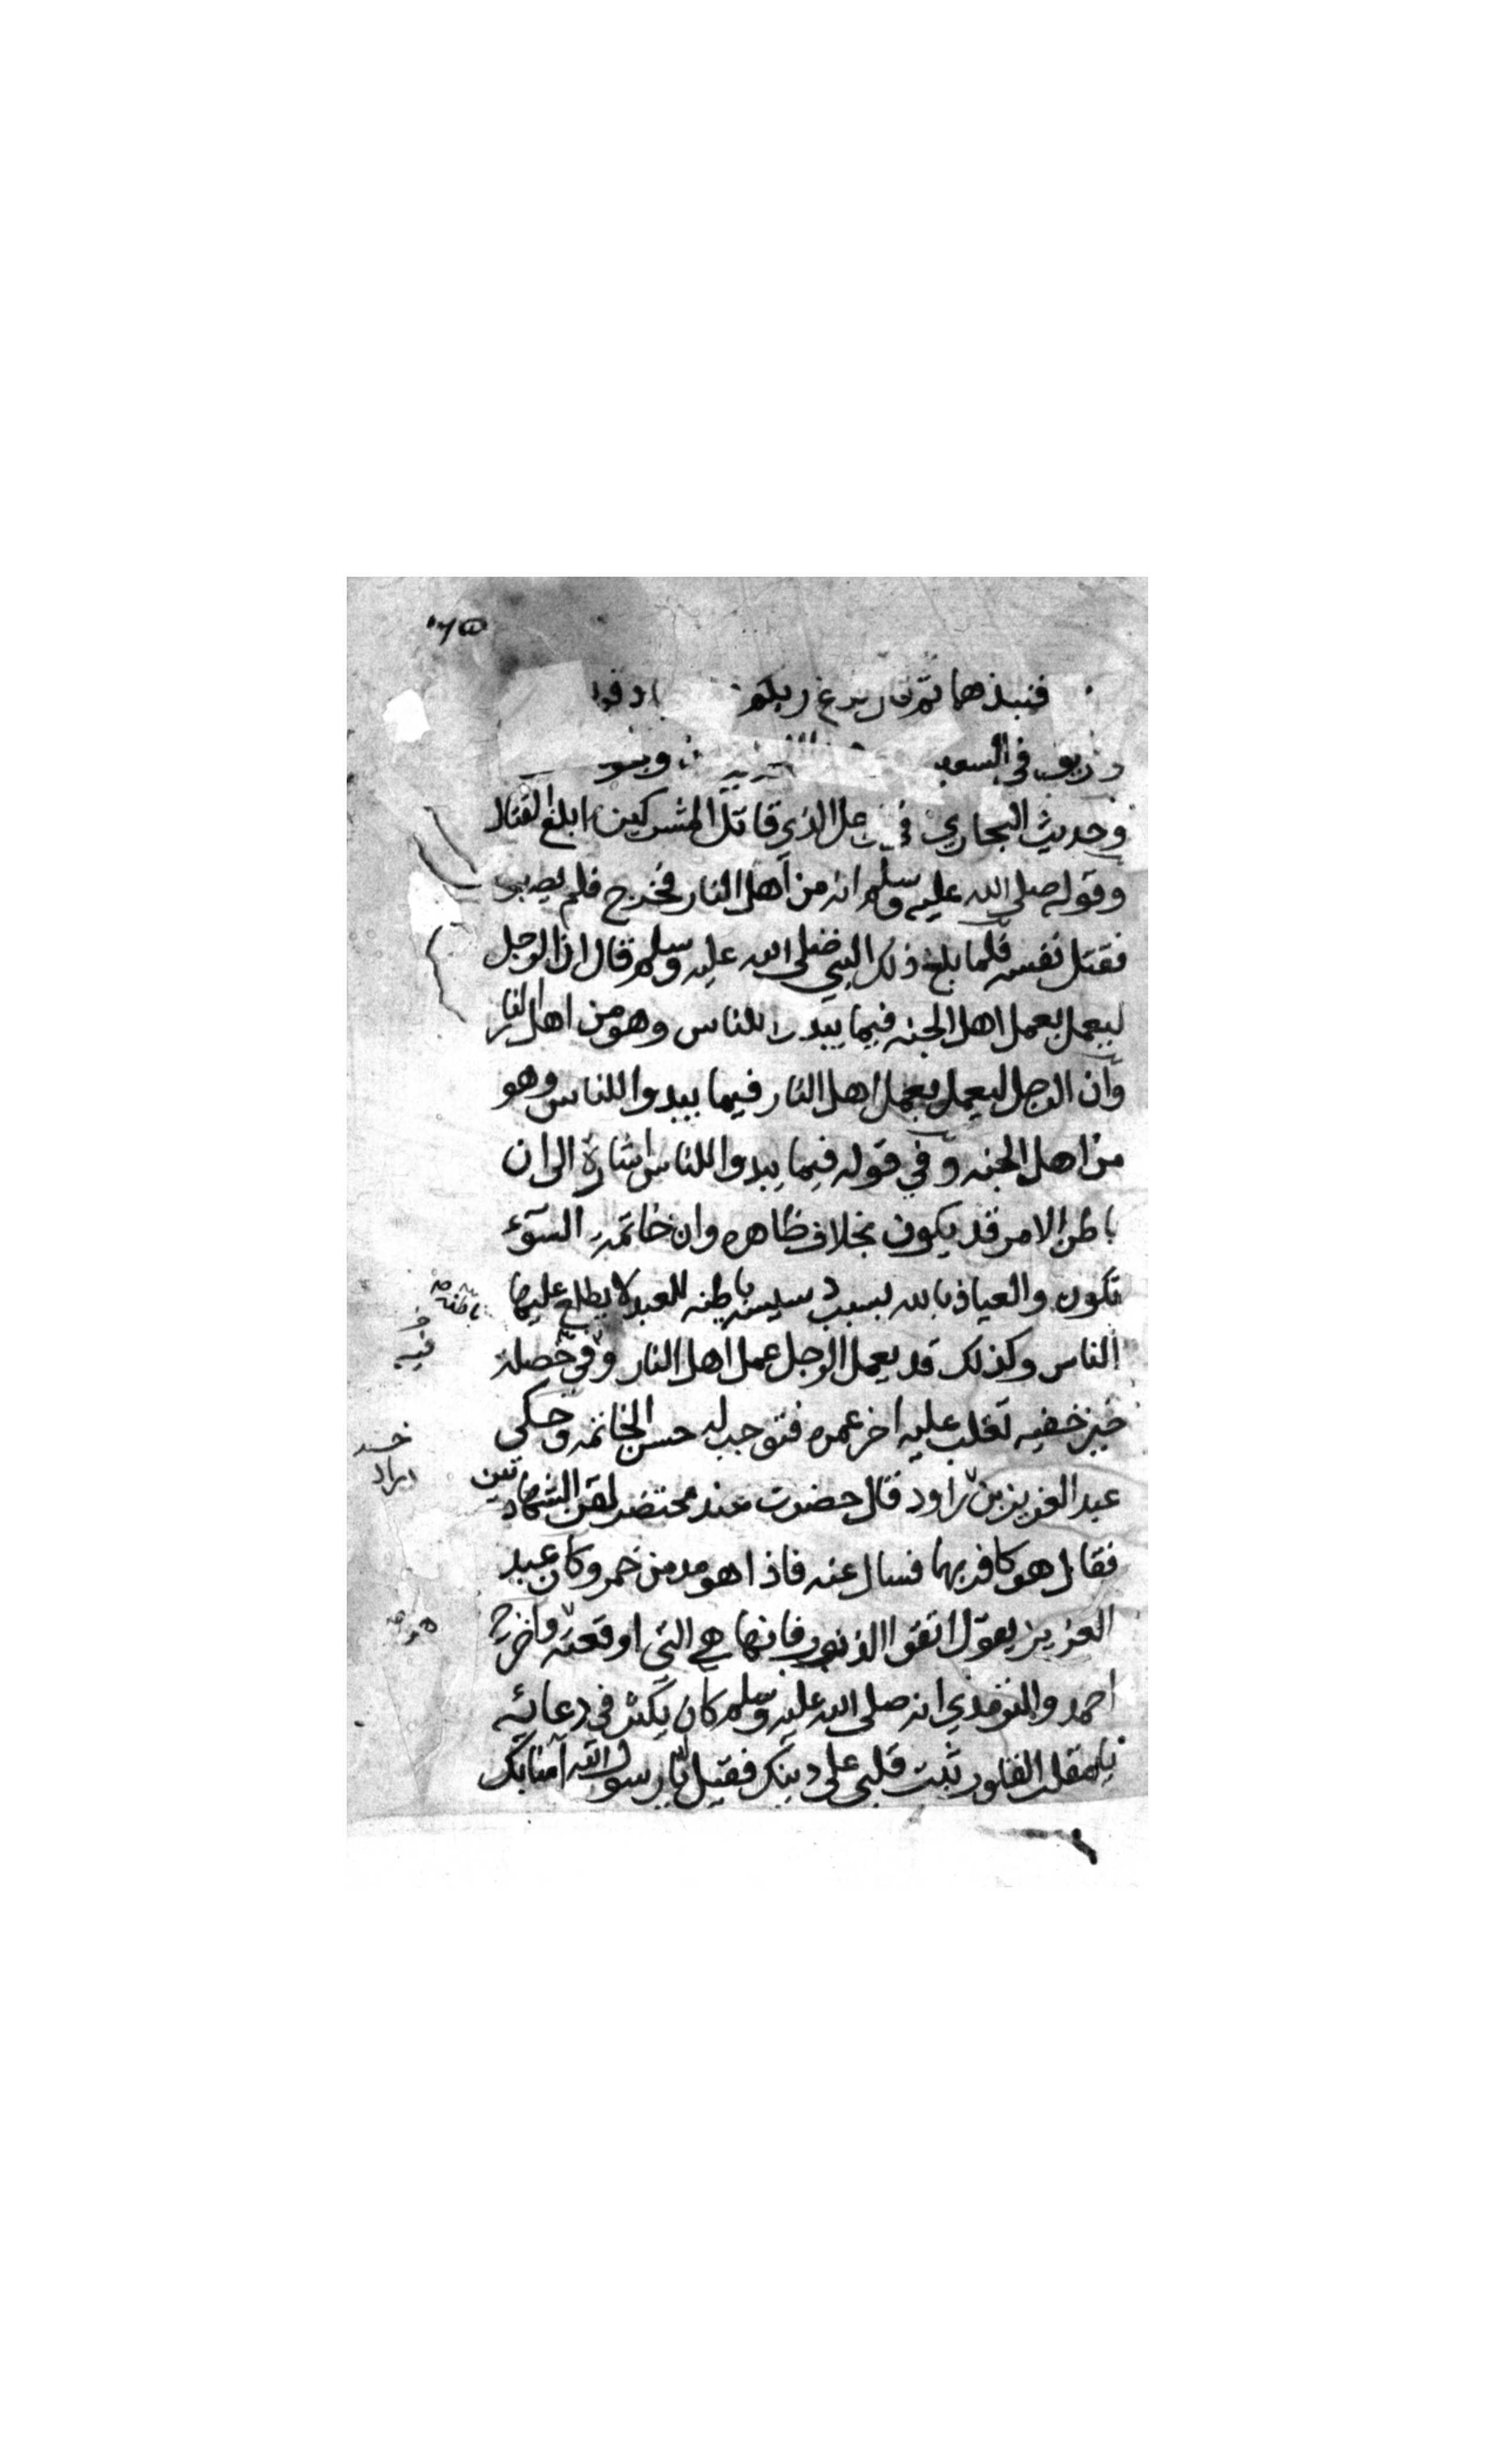 فنبذهما ثم قال فرغ ربكم
في السعير
وحديث البخاري في الذي قاتل المشركين ابلغ القتال
وقوله صلى الله عليه وسلم انه من اهل النار فخرج فلم يصبر
فقتل نفسه فلما بلغ ذلك النبي صلى الله عليه وسلم قال ان الرجل
ليعمل بعمل اهل الجنه فيما يبدوا للناس وهو من اهل النار
وان الرجل ليعمل بعمل اهل النار فيما يبدوا للناس وهو
من اهل الجنه وفي قوله فيما يبدوا للناس اشارة الى ان
باطن الامر قد يكون بخلاف ظاهره وان خاتمه السوء
تكون والعياذ بالله بسبب دسيسه باطنه للعبد لا يطلع عليها
باطنه صح
الناس وكذلك قد يعمل الرجل عمل اهل النار وفي خصلة
فيه
خير خفيه تغلب عليه اخر عمره فتوجب له حسن الخاتمه وحكي
عبد العزيز بن راود قال حضرت عند محتضر لقن الشهادتين
فقال هو كافر بهما فسال عنه فاذا هو مدمن خمر وكان عبد
العزيز يقول اتقوا الذنوب فانها هي التي اوقعته واخرج
احمد والترمذي انه صلى الله عليه وسلم كان يكثر في دعائه
يا مقلب القلوب ثبت قلبي على دينك فقيل يا رسول الله آمنا بك